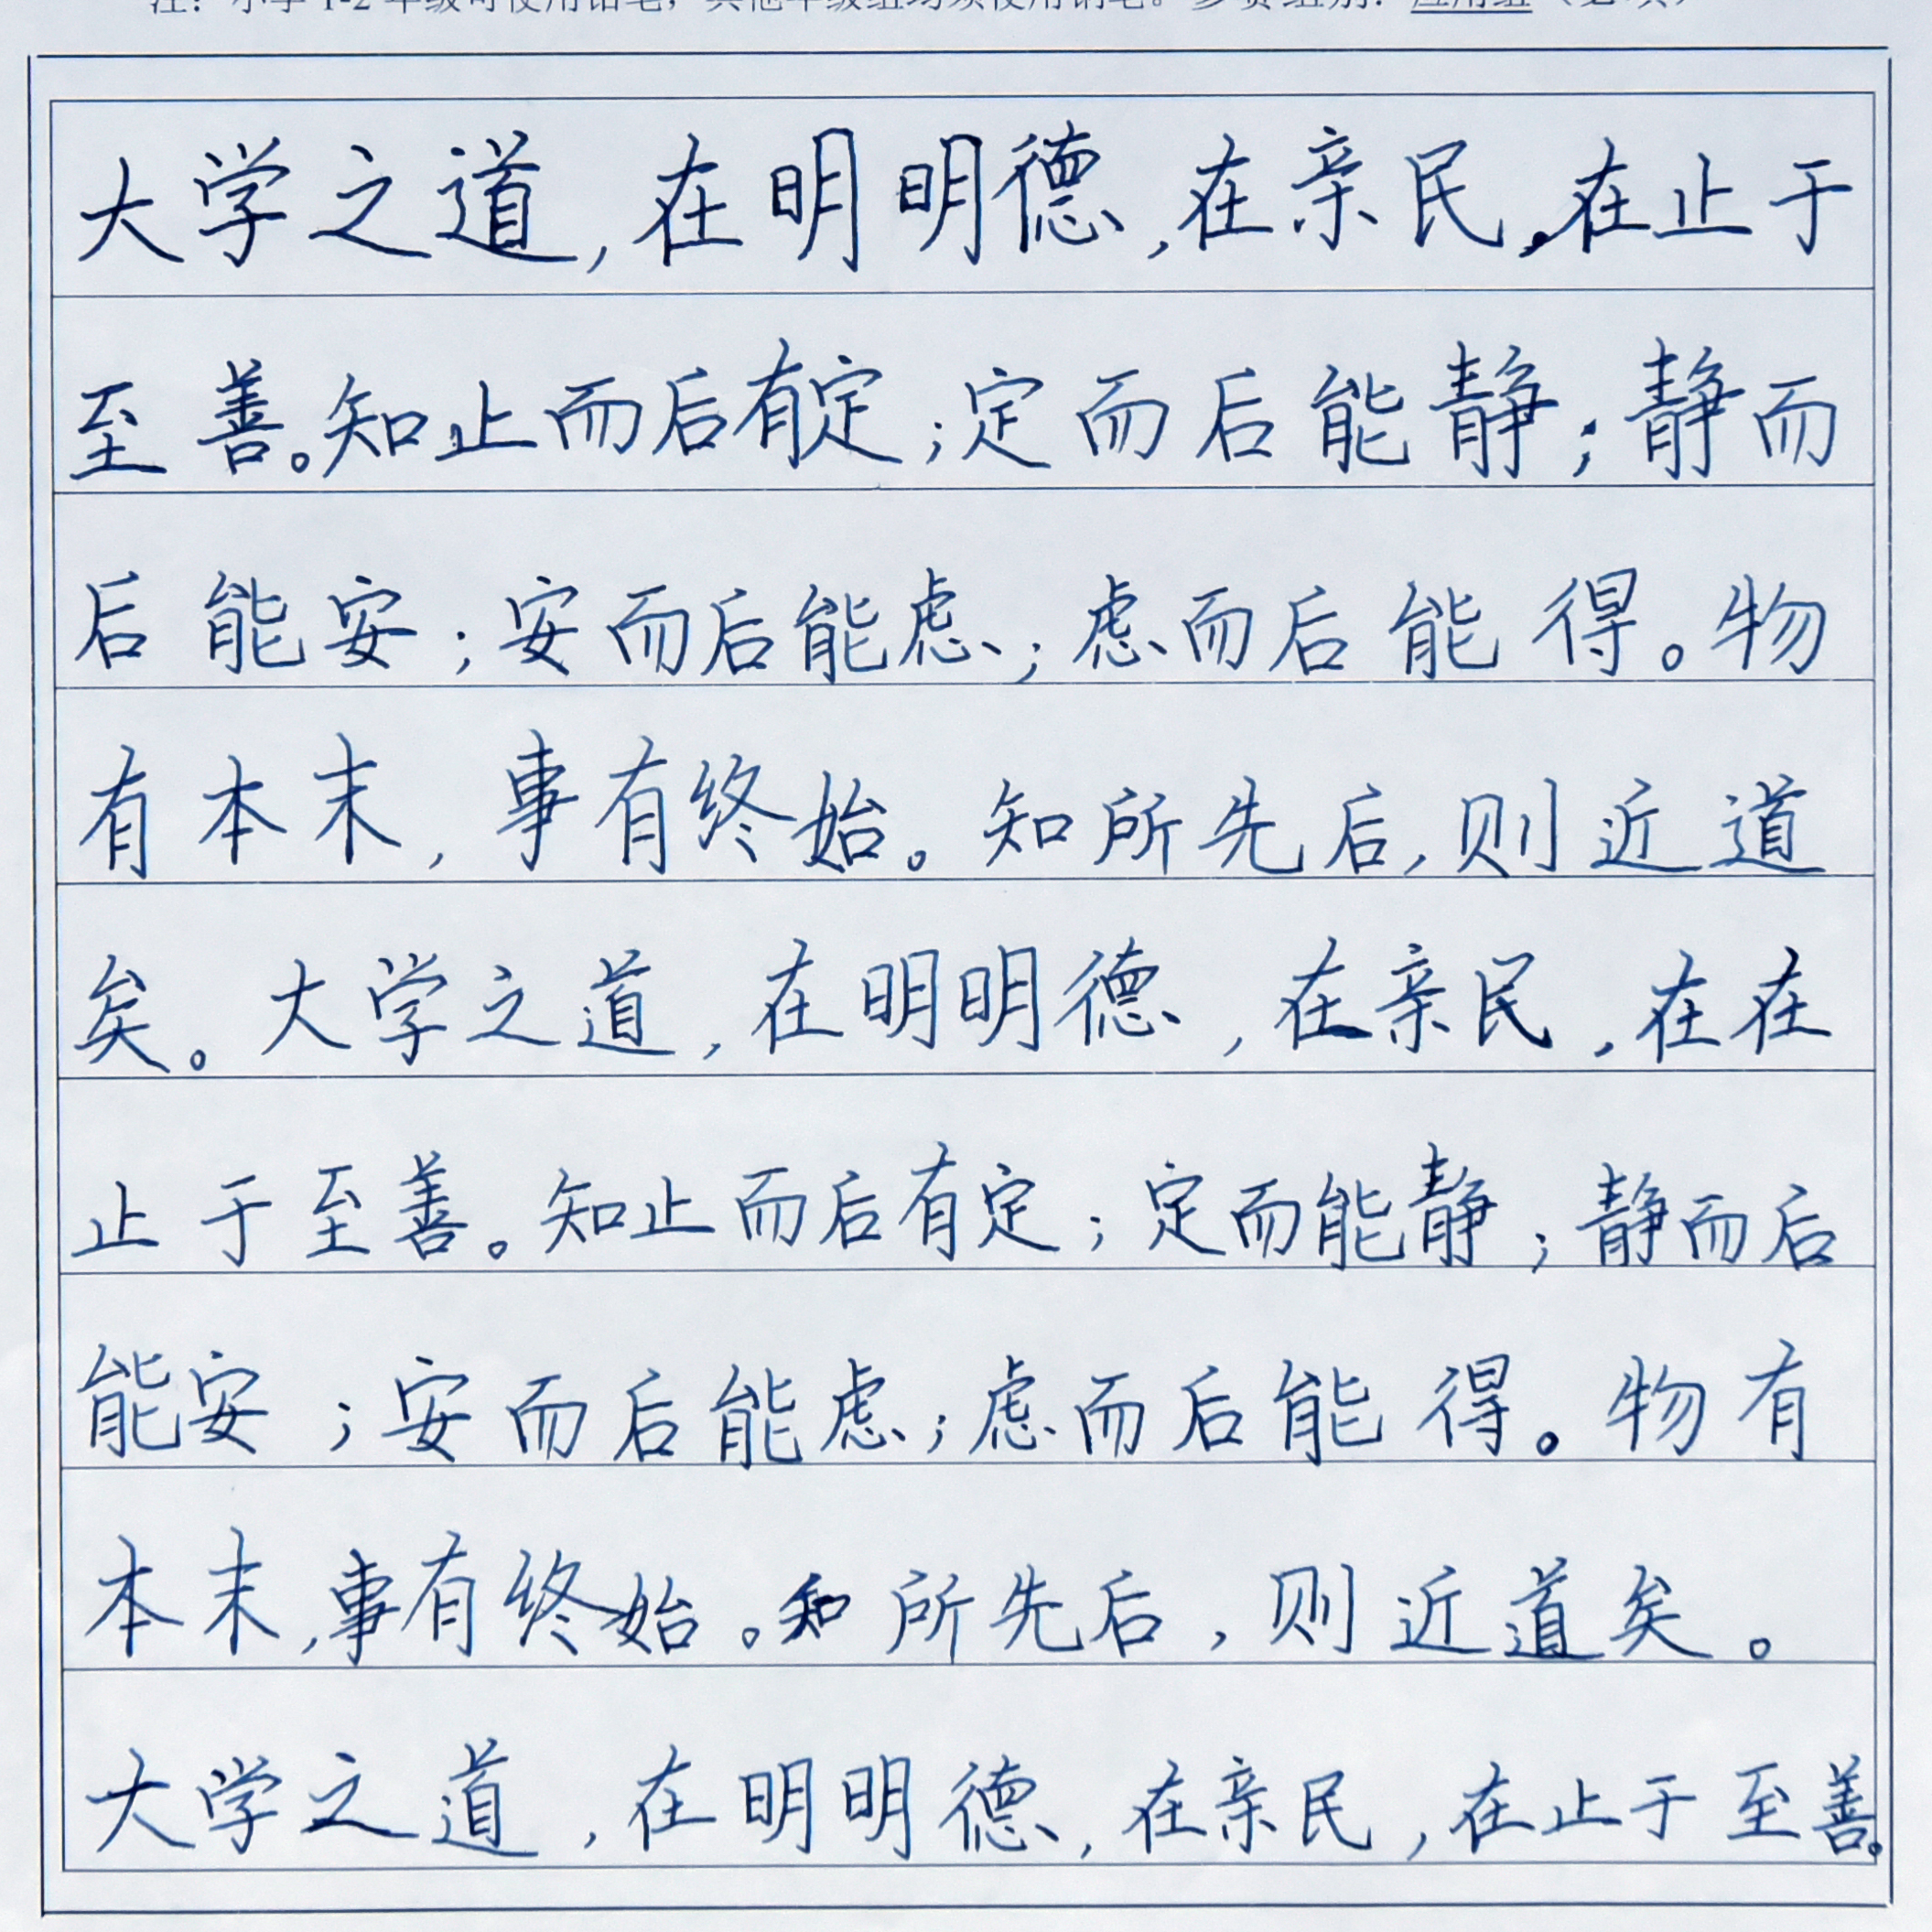 注：小学1-2年级可使用铅笔，其他年级组均须使用钢笔。参赛组别：应用组（必填）
大学之道，在明明德，在亲民，在止于
至善。知止而后有定；定而后能静；静而
后能安；安而后能虑；虑而后能得。物
有本末，事有终始。知所先后，则近道
矣。大学之道，在明明德，在亲民，在在
止于至善。知止而后有定；定而能静；静而后
能安；安而后能虑；虑而后能得。物有
本末，事有终始。知所先后，则近道矣。
大学之道，在明明德，在亲民，在止于至善。